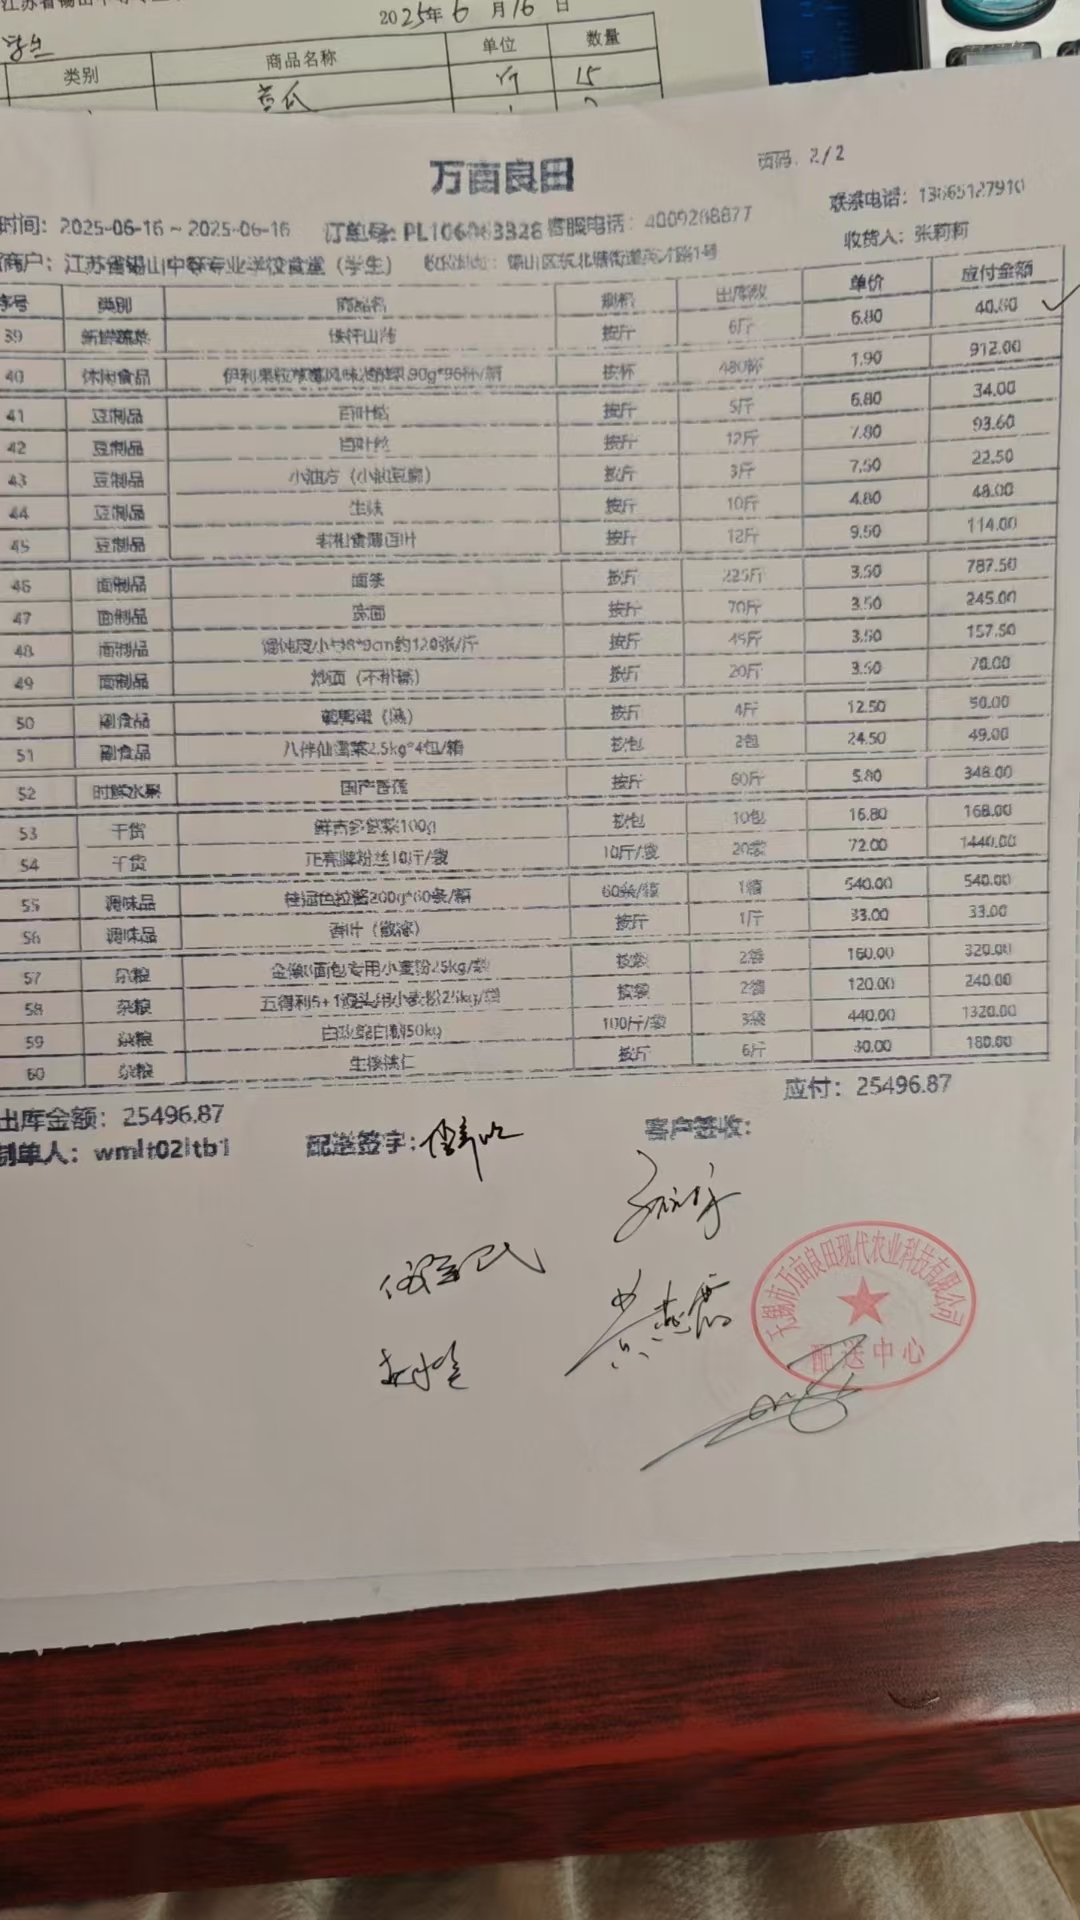 2025年6月16日
类别 商品名称 单位 数量
黄瓜 斤 15
万亩良田
页码: 2/2
时间: 2025-06-16 ~ 2025-06-16 订单号: 客服电话: 4009288877 联系电话: 13665127910
商户: 江苏省锡山中等专业学校食堂 (学生) 收货人: 张莉莉
序号 类别 商品名 规格 出库数 单价 应付金额
39 新鲜蔬菜 铁杆山药 按斤 6斤 6.80 40.80
40 休闲食品 按杯 480杯 1.90 912.00
41 豆制品 百叶结 按斤 5斤 6.80 34.00
42 豆制品 百叶丝 按斤 12斤 7.80 93.60
43 豆制品 小油方 按斤 3斤 7.50 22.50
44 豆制品 生麸 按斤 10斤 4.80 48.00
45 豆制品 按斤 12斤 9.50 114.00
46 面制品 面条 按斤 225斤 3.50 787.50
47 面制品 宽面 按斤 70斤 3.50 245.00
48 面制品 按斤 45斤 3.50 157.50
49 面制品 炒面 按斤 20斤 3.50 70.00
50 副食品 鹌鹑蛋 按斤 4斤 12.50 50.00
51 副食品 2.5kg*4包/箱 按包 2包 24.50 49.00
52 时鲜水果 国产香蕉 按斤 60斤 5.80 348.00
53 干货 100g 按包 10包 16.80 168.00
54 干货 正亮牌粉丝10斤/袋 10斤/袋 20袋 72.00 1440.00
55 调味品 色拉酱200g*60条/箱 60条/箱 1箱 540.00 540.00
56 调味品 香叶 按斤 1斤 33.00 33.00
57 杂粮 面包专用小麦粉25kg/袋 按袋 2袋 160.00 320.00
58 杂粮 五得利5+1馒头用小麦粉25kg/袋 按袋 2袋 120.00 240.00
59 杂粮 50kg 100斤/袋 3袋 440.00 1320.00
60 杂粮 生核桃仁 按斤 6斤 30.00 180.00
出库金额: 25496.87 应付: 25496.87
制单人: wmlt02ltb1 配送签字: 客户签收:
无锡市万亩良田现代农业科技有限公司
配送中心